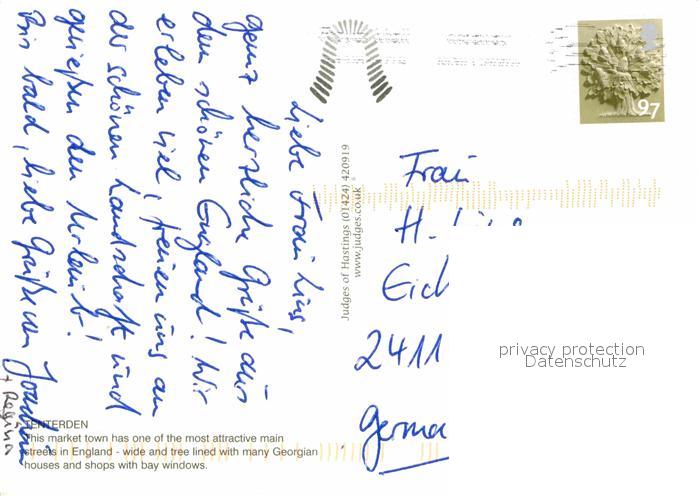 Liebe Frau Lins,
ganz herzliche Grüße aus
dem schönen England! Wir
erleben viel, freuen uns an
der schönen Landschaft und
genießen den Urlaub!
Bis bald, liebe Grüße von Joachim
+ Regina
Judges of Hastings (01424) 420919
www.judges.co.uk
97
Frau
H.
Eich
2411
Germa
privacy protection
Datenschutz
TENTERDEN
This market town has one of the most attractive main
streets in England - wide and tree lined with many Georgian
houses and shops with bay windows.